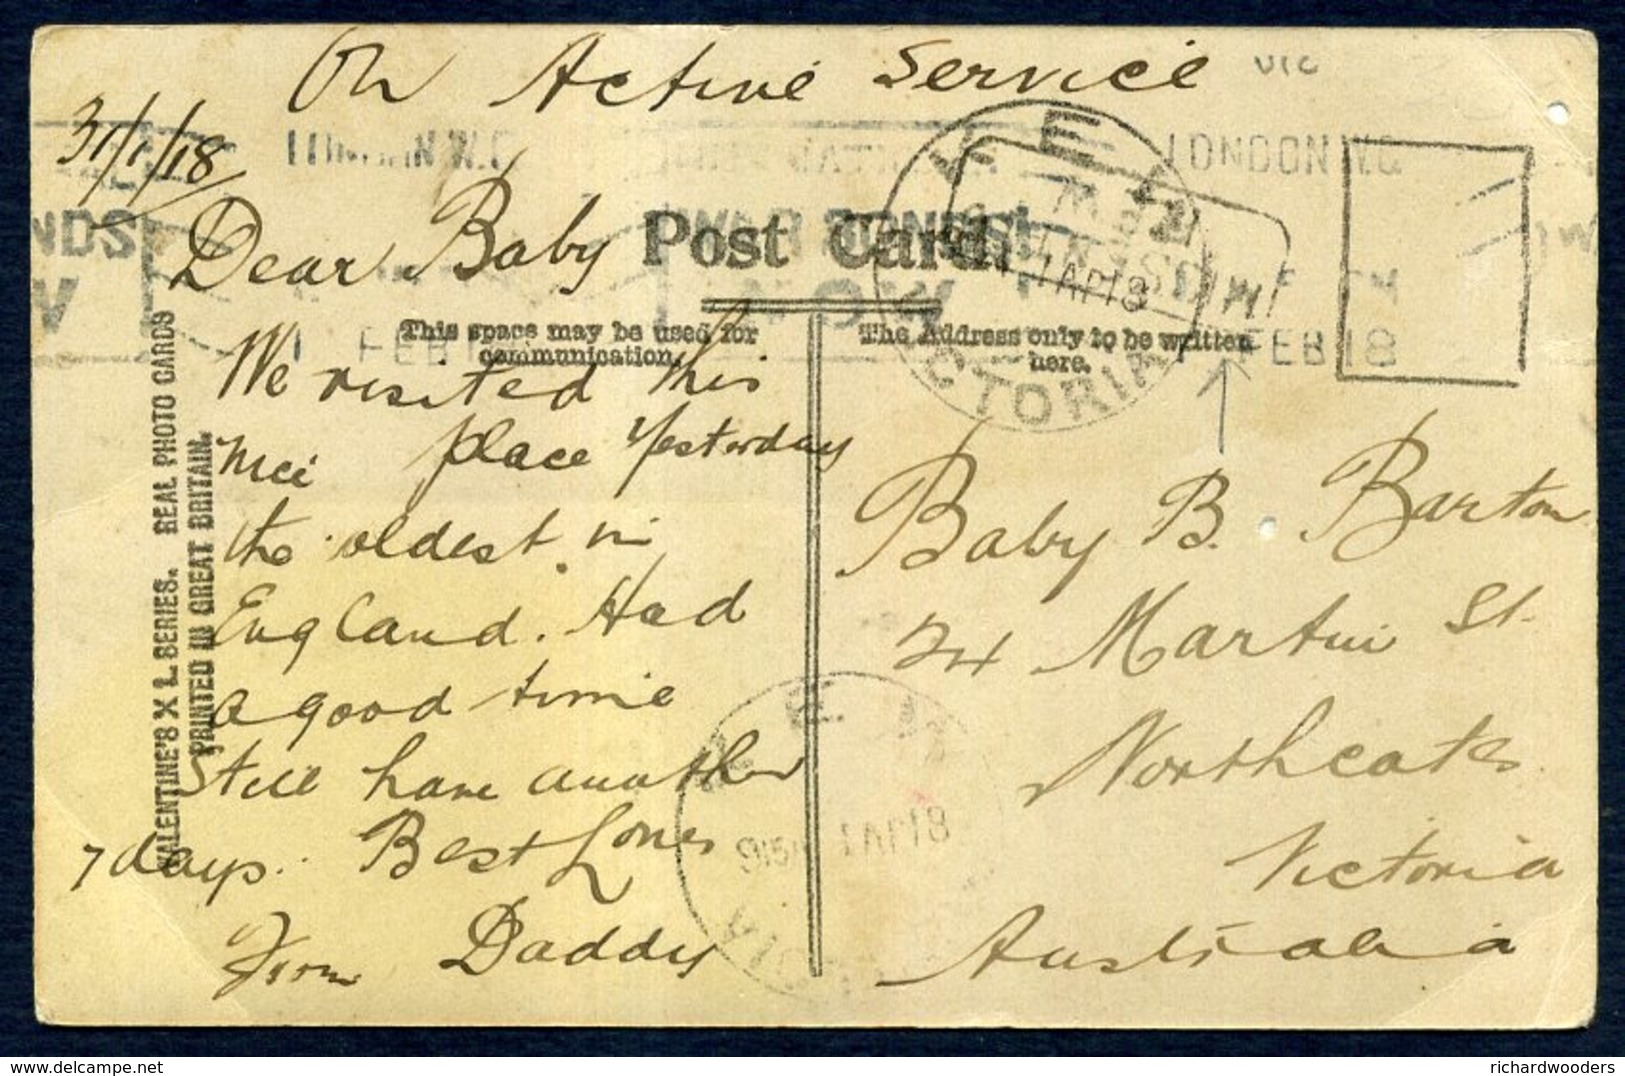 On Active Service
31/1/18
Dear Baby
We visited this
nice place yesterday
the oldest in
England. Had
a good time
Still have another
7 days. Best Love
From Daddy
Post Card.
This space may be used for
communication.
The Address only to be written
here.
Baby B. Barton
24 Martin St.
Northcote
Victoria
Australia
VALENTINE'S X L SERIES. REAL PHOTO CARDS
PRINTED IN GREAT BRITAIN.
LONDON W.C
LONDON W.C
NDS
WAR BONDS
NOW
FEB 18
FEB 18
KEW
1 AP 18
VICTORIA
KEW
915 1 AP 18
VIC
richardwooders